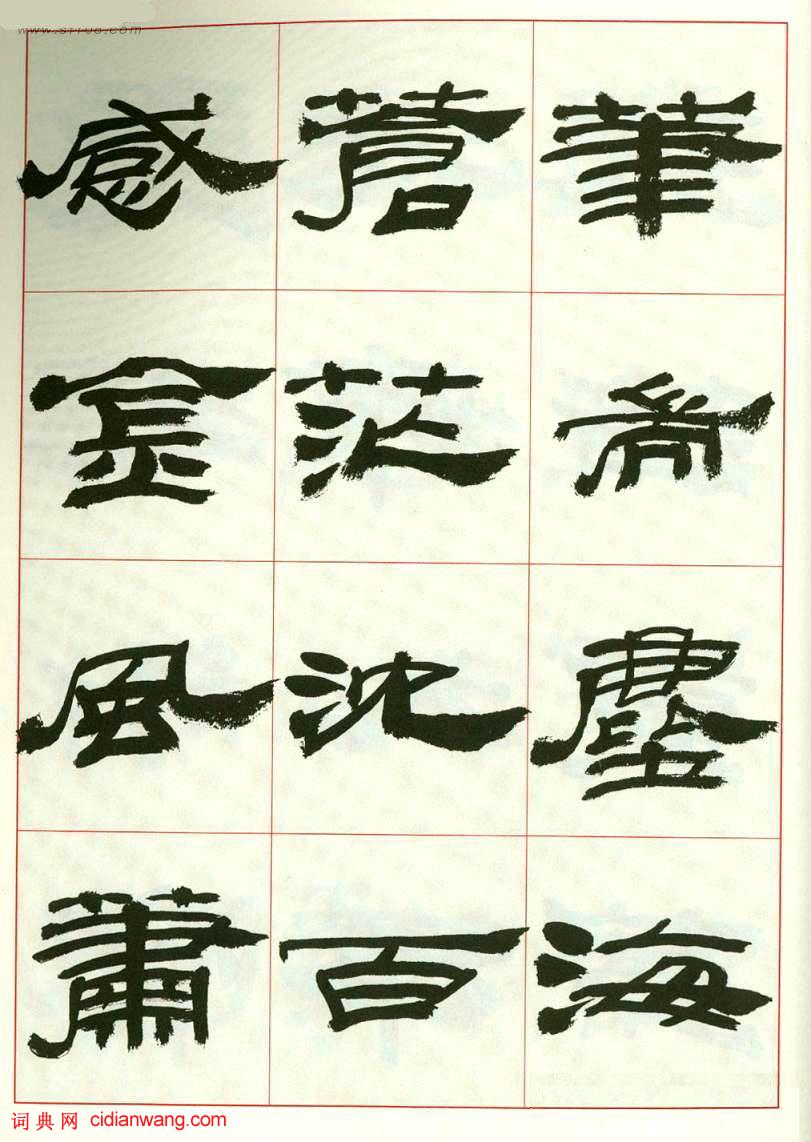 筆耑塵海
蒼茫沈百
感金風蕭
词典网 cidianwang.com